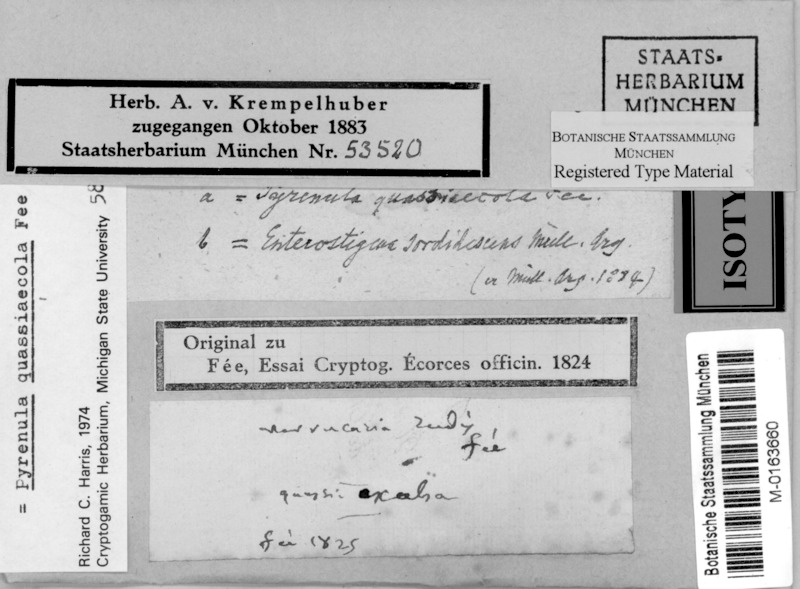 STAATS-
HERBARIUM
MÜNCHEN
Herb. A. v. Krempelhuber
zugegangen Oktober 1883
Staatsherbarium München Nr. 53520
BOTANISCHE STAATSSAMMLUNG
MÜNCHEN
Registered Type Material
a = Pyrenula quassiaecola Fée.
b = Enterostigma sordidescens Müll. Arg.
(cr Müll. Arg. 1884)
ISOTY
Original zu
Fée, Essai Cryptog. Écorces officin. 1824
verrucaria
fée
quassia excelsa
fée 1825
= Pyrenula quassiaecola Fee
Richard C. Harris, 1974
Cryptogamic Herbarium, Michigan State University 58
Botanische Staatssammlung München
M-0163660